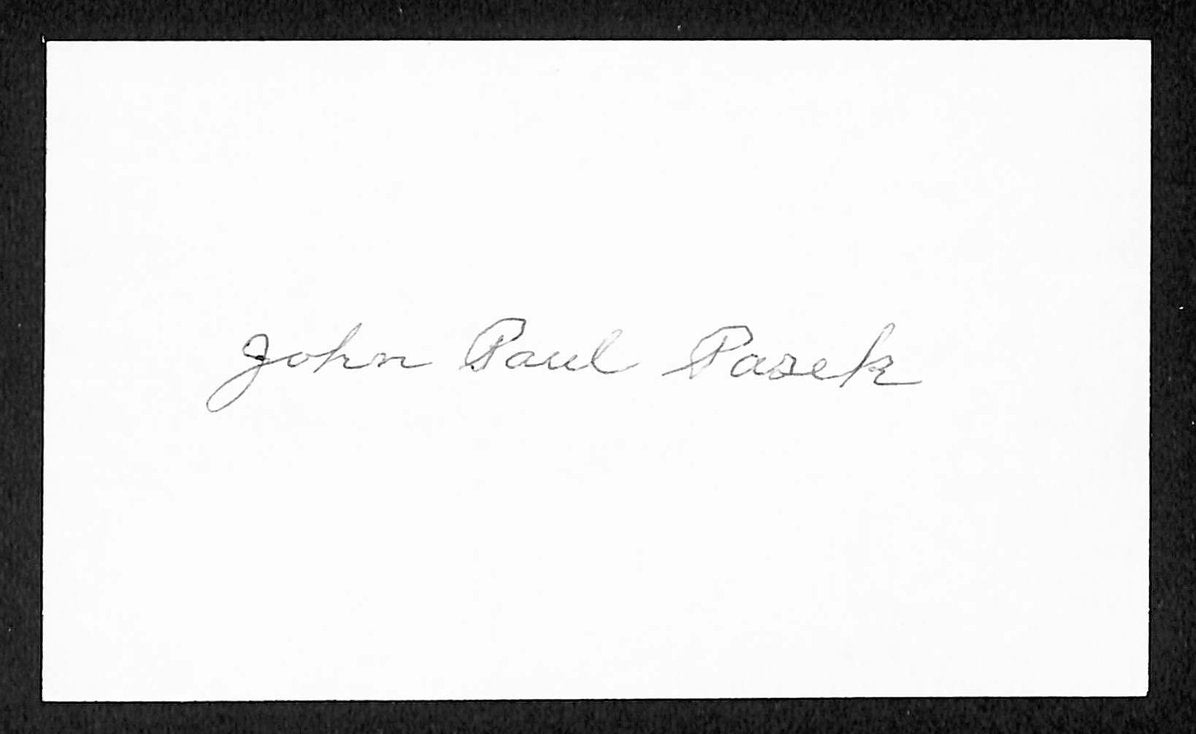 John Paul Pasek